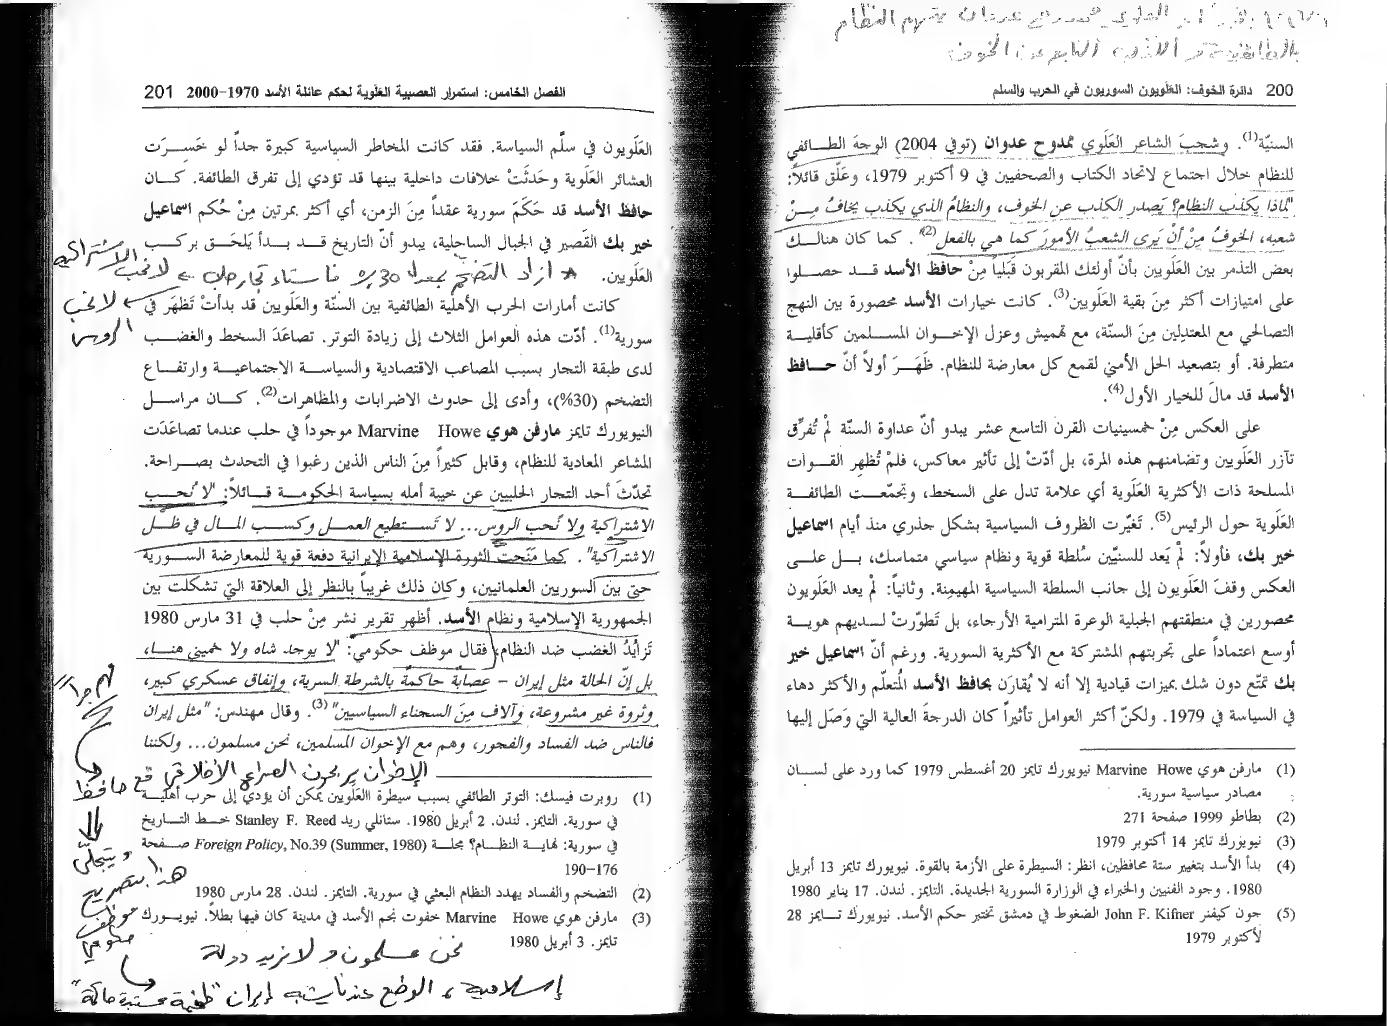 200 دائرة الخوف: العَلَويون السوريون في الحرب والسلم
السنيّة(1). وشجبَ الشاعر العَلَوي ممدوح عدوان (توفي 2004) الوجهَ الطـائفي
للنظام خلال اجتماع لاتحاد الكتاب والصحفيين في 9 أكتوبر 1979، وعَلّق قائلاً:
"لماذا يكذب النظام؟ يَصدر الكذب عن الخوف، والنظامُ الذي يكذب يخافُ مِـنْ
شعبه، الخوفُ مِنْ أنْ يَرى الشعبُ الأمورَ كما هي بالفعل(2)". كما كان هنالـك
بعض التذمر بين العَلَويين بأنّ أولئك المقربون قَبَلياً مِنْ حافظ الأسد قـد حصـلوا
على امتيازات أكثر مِنَ بقية العَلَويين(3). كانت خيارات الأسد محصورة بين النهج
التصالحي مع المعتدِلين مِنَ السنّة، مع تهميش وعزل الإخـوان المسـلمين كأقليـة
متطرفة. أو بتصعيد الحل الأمني لقمع كل معارضة للنظام. ظَهَـرَ أولاً أنّ حـافظ
الأسد قد مالَ للخيار الأول(4).
على العكس مِنْ خمسينيات القرن التاسع عشر يبدو أنّ عداوة السنّة لَمْ تُفرِّق
تآزر العَلَويين وتضامنهم هذه المرة، بل أدّتْ إلى تأثير معاكس، فلمْ تُظهِر القـوات
المسلحة ذات الأكثرية العَلَوية أي علامة تدل على السخط، وتجمّعـت الطائفـة
العَلَوية حول الرئيس(5). تَغيّرت الظروف السياسية بشكل جذري منذ أيام اسماعيل
خير بك، فأولاً: لَمْ يَعد للسنيّين سُلطة قوية ونظام سياسي متماسك، بـل علـى
العكس وقفَ العَلَويون إلى جانب السلطة السياسية المهيمنة. وثانياً: لَمْ يعد العَلَويون
محصورين في منطقتهم الجبلية الوعرة المترامية الأرجاء، بل تَطوّرتْ لـديهم هويـة
أوسع اعتماداً على تجربتهم المشتركة مع الأكثرية السورية. ورغم أنّ اسماعيل خير
بك تمتّع دون شك بميزات قيادية إلا أنه لا يُقارَن بحافظ الأسد المُتعلّم والأكثر دهاء
في السياسة في 1979. ولكنّ أكثر العوامل تأثيراً كان الدرجةَ العالية التي وَصَل إليها
(1) مارفن هوي Marvine Howe نيويورك تايمز 20 أغسطس 1979 كما ورد على لسـان
مصادر سياسية سورية.
(2) بطاطو 1999 صفحة 271
(3) نيويورك تايمز 14 أكتوبر 1979
(4) بدأ الأسد بتغيير ستة محافظين، انظر: السيطرة على الأزمة بالقوة. نيويورك تايمز 13 أبريل
1980. وجود الفنيين والخبراء في الوزارة السورية الجديدة. التايمز. لندن. 17 يناير 1980
(5) جون كيفنر John F. Kifner الضغوط في دمشق تختبر حكم الأسد. نيويورك تـايمز 28
لأكتوبر 1979
الفصل الخامس: استمرار العصبية العَلَوية لحكم عائلة الأسد 1970–2000 201
العَلَويون في سلّم السياسة. فقد كانت المخاطر السياسية كبيرة جداً لو خَسِـرَت
العشائر العَلَوية وحَدثَتْ خلافات داخلية بينها قد تؤدي إلى تفرق الطائفة. كـان
حافظ الأسد قد حَكَمَ سورية عقداً مِنَ الزمن، أي أكثر بمرتين مِنْ حُكم اسماعيل
خير بك القَصير في الجبال الساحلية، يبدو أنّ التاريخ قـد بـدأ يَلحَـق بركـب
العَلَويين.
كانت أمارات الحرب الأهلية الطائفية بين السنّة والعَلَويين قد بدأتْ تَظهَر في
سورية(1). أدّت هذه العوامل الثلاث إلى زيادة التوتر. تصاعَدَ السخط والغضـب
لدى طبقة التجار بسبب المصاعب الاقتصادية والسياسة الاجتماعيـة وارتفـاع
التضخم (30%)، وأدى إلى حدوث الاضرابات والمظاهرات(2). كـان مراسـل
النيويورك تايمز مارفن هوي Marvine Howe موجوداً في حلب عندما تصاعَدَت
المشاعر المعادية للنظام، وقابل كثيراً مِنَ الناس الذين رغبوا في التحدث بصـراحة.
تحدّثَ أحد التجار الحلبيين عن خيبة أمله بسياسة الحكومـة قـائلاً: "لا نُحـب
الاشتراكية ولا نُحب الروس... لا نَسـتطيع العمـل وكسـب المـال في ظـل
الاشتراكية". كما مَنَحتْ الثورة الإسلامية الإيرانية دفعة قوية للمعارضة السـورية
حتى بين السوريين العلمانيين، وكان ذلك غريباً بالنظر إلى العلاقة التي تشكلت بين
الجمهورية الإسلامية ونظام الأسد. أظهر تقرير نشر مِنْ حلب في 31 مارس 1980
تَزايُدُ الغضب ضد النظام، فقال موظف حكومي: "لا يوجد شاه ولا خميني هنـا،
بل إنّ الحالة مثل إيران - عصابة حاكمة بالشرطة السرية، وإنفاق عسكري كبير،
وثروة غير مشروعة، وآلاف مِنَ السجناء السياسيين"(3). وقال مهندس: "مثل إيران
فالناس ضد الفساد والفجور، وهم مع الإخوان المسلمين، نحن مسلمون... ولكننا
(1) روبرت فيسك: التوتر الطائفي بسبب سيطرة العَلَويين يمكن أن يؤدي إلى حرب أهليـة
في سورية. التايمز. لندن. 2 أبريل 1980. ستانلي ريد Stanley F. Reed خـط التـاريخ
في سورية: نهاية النظام؟ مجلـة Foreign Policy, No.39 (Summer, 1980) صـفحة
176-190
(2) التضخم والفساد يهدد النظام البعثي في سورية. التايمز. لندن. 28 مارس 1980
(3) مارفن هوي Marvine Howe خفوت نجم الأسد في مدينة كان فيها بطلاً. نيويـورك
تايمز. 3 أبريل 1980
نحن مسلمون ولا نريد دولة
إسلامية، الوضع عندنا يشبه إيران